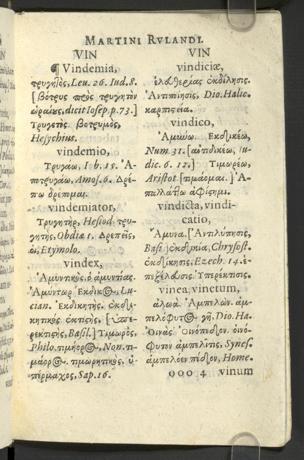 MARTINI RVLANDI.
VIN
¶ Vindemia,
τρυγητὸς, Leu. 26. Iud. 8.
[βότρυς πρὸς τρυγητὸν
ὡραίυς, dicit Iosep. p. 73.]
Τρυγετὸς βότρυμος,
Hesychius.
vindemio,
Τρυγάω, I. b. 15. Ἀ-
ποτρυγάω, Amos. 6. Δρέ-
πω δρέμμα.
vindemiator,
Τρυγητὴρ, Hesiod. τρυ-
γητὴς, Obdiæ 1. Δρεπεὺς,
Etymolo.
vindex,
Ἀμυντικὸς. ὁ ἀμυντίας.
Ἀμύντωρ. Ἔκδικος, Lu-
cian. Ἐκδικητὴς.
Basil.] Τιμωρὸς,
Philo. Non.
τιμωρητικὸς, ὑ-
πέρμαχος, Sap. 16.
VIN
vindiciæ,
ἐλευθερίας ἐκδίκησις.
Dio. Halic.
καρπιστεία.
vindico,
Ἀμύνω. Ἐκδικέω,
Num. 31. [αὐτοδικέω, Iu-
dic. 6. 12.] Τιμωρέω,
Aristot. [τιμάομαι.] Ἀ-
παλλάττω ἀφίημι.
vindicta, vindi-
catio,
Ἄμυνα. [Ἀντιλύπησις,
Basi.] Chrysost.
ἐκδίκησις, Ezech. 14. ἐ-
πεξέλευσις. Ὑπερέκτισις.
vinea, vinetum,
ἀλωὰ. Ἀμπελὼν. ἀμ-
πελόφυτος γῆ, Dio. Ha.
Οἰνὰς. Οἰνόπεδον. οἰνό-
φυτον ἀμπελῖτις. Synes.
ἀμπελόεν πέδιον, Home.
ooo 4 vinum